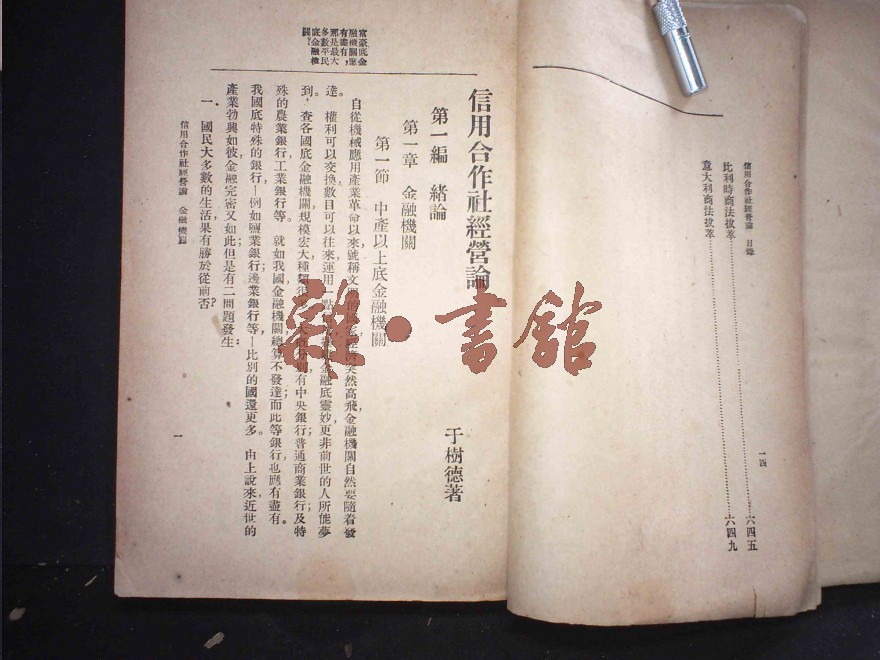 信用合作社經營論 目錄
一四
比利時商法拔萃……六四五
意大利商法拔萃……六四九
信用合作社經營論
于樹德著
第一編 緒論
第一章 金融機關
第一節 中產以上底金融機關
自從機械應用產業革命以來,號稱文明的突然高飛,金融機關自然要隨着發
達。權利可以交換,數目可以往來,運用一點金融底靈妙,更非前世的人所能夢
到。查各國底金融機關,規模宏大,種類有中央銀行;普通商業銀行;及特
殊的農業銀行工業銀行等。就如我國,金融機關總算不發達,而此等銀行也應有盡有。
我國底特殊的銀行—例如鹽業銀行;邊業銀行等—比別的國還更多。由上說來,近世的
產業勃興如彼,金融完密又如此,但是有二問題發生:
一.國民大多數的生活果有勝於從前否?
富豪底金
融機關應
有盡有,
那是最大
多數平民
底金融機
關?
信用合作社經營論 金融機關
一
雜·書館